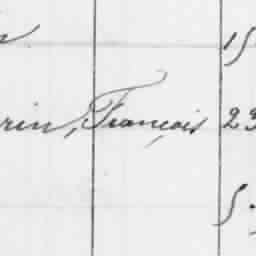 15
rin, François 23
5.